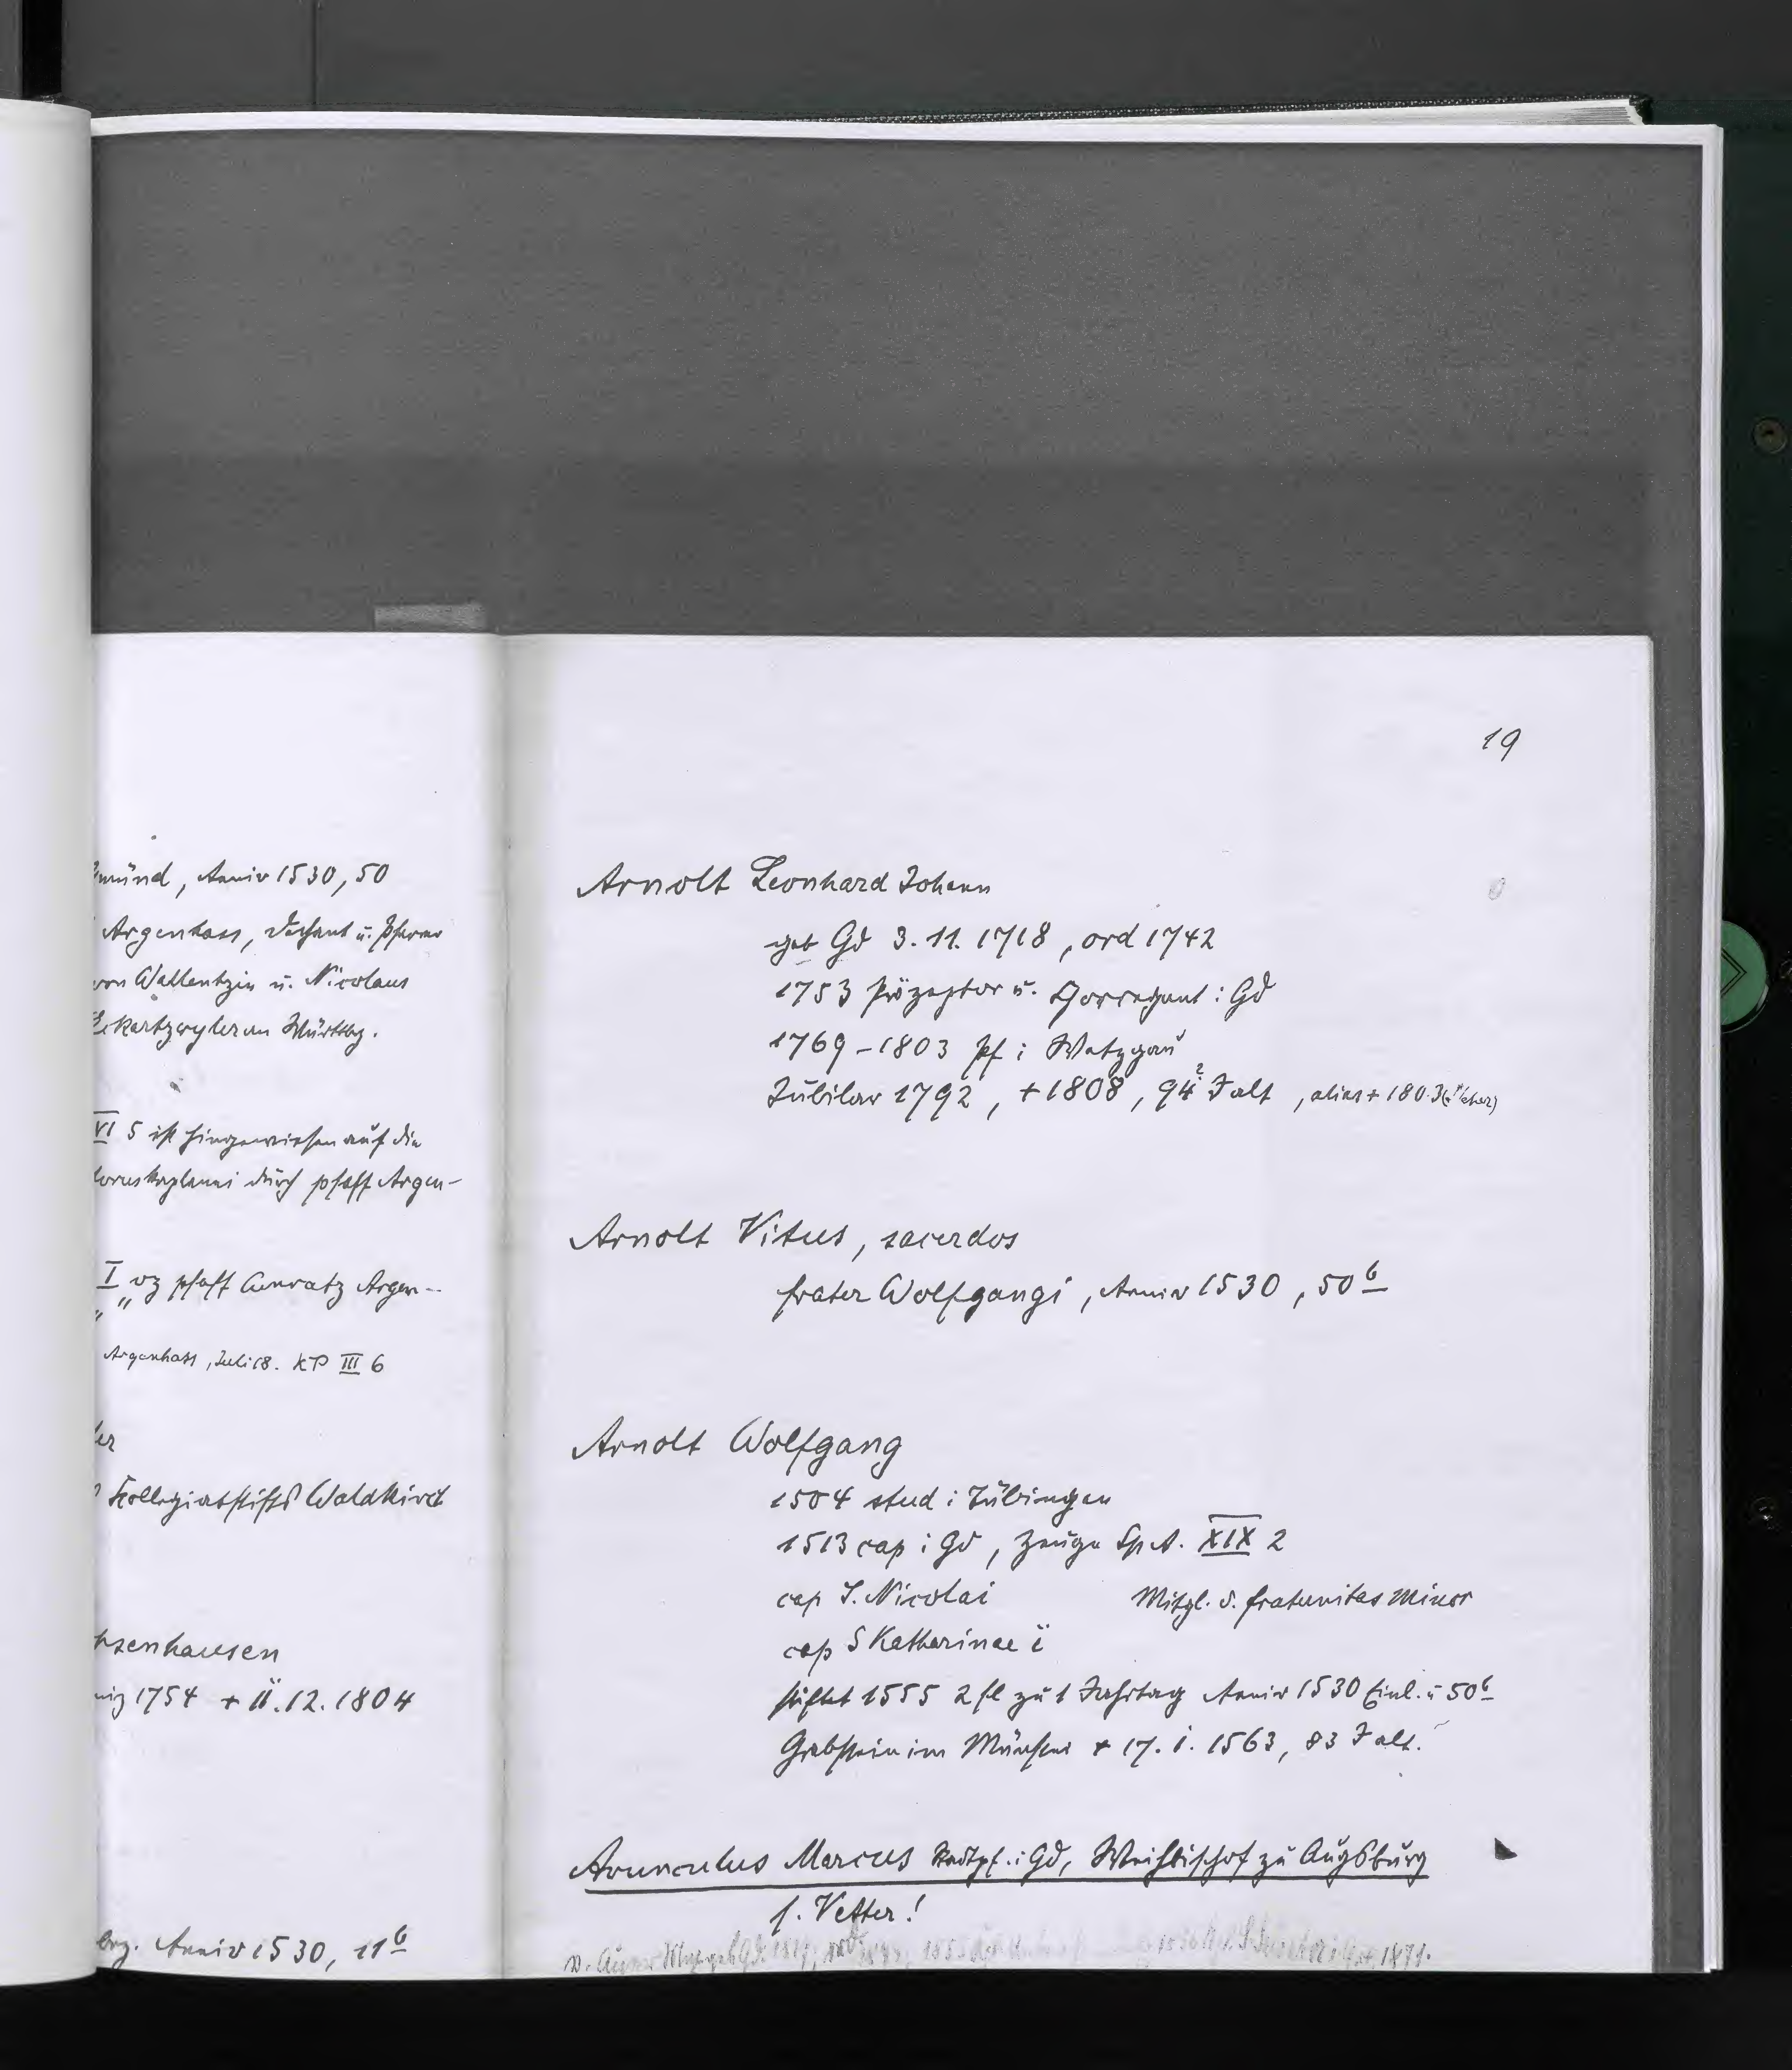 münd, Anniv 1530, 50
Argenhass, Dechant u. Pfarrer
von Wallentzin u. Nicolaus
Ekartzwyler in Württbg.
VI 5 ist hingewiesen auf die
kaplanei durch pfaff Argen-
I vz pfaff Cunratz Argen-
Argenhass, Juli 18. KP III 6
er
Kollegiatstifts Waldkirch
hsenhausen
1754 + 11.12.1804
Anniv 1530, 11 b
19
Arnolt Leonhard Johann
geb Gd 3.11.1718, ord 1742
1753 Präzeptor u. Chorregent i Gd
1769-1803 Pf i Wetzgau
Jubilar 1792, +1808, 94? J alt, alias + 1803
Arnolt Vitus, sacerdos
frater Wolfgangi, Anniv 1530, 50 b
Arnolt Wolfgang
1504 stud i Tübingen
1513 cap i Gd, Zeuge Sp A. XIX 2
cap S. Nicolai Mitgl. d. fraternitas minor
cap S Katharinae
stiftet 1555 2 fl zu 1 Jahrtag Anniv 1530 Einl. u 50 b
Grabstein im Münster + 17. i. 1563, 83 J alt.
Avunculus Marcus Stadtpf. i Gd, Weihbischof zu Augsburg
s. Vetter!
1871.